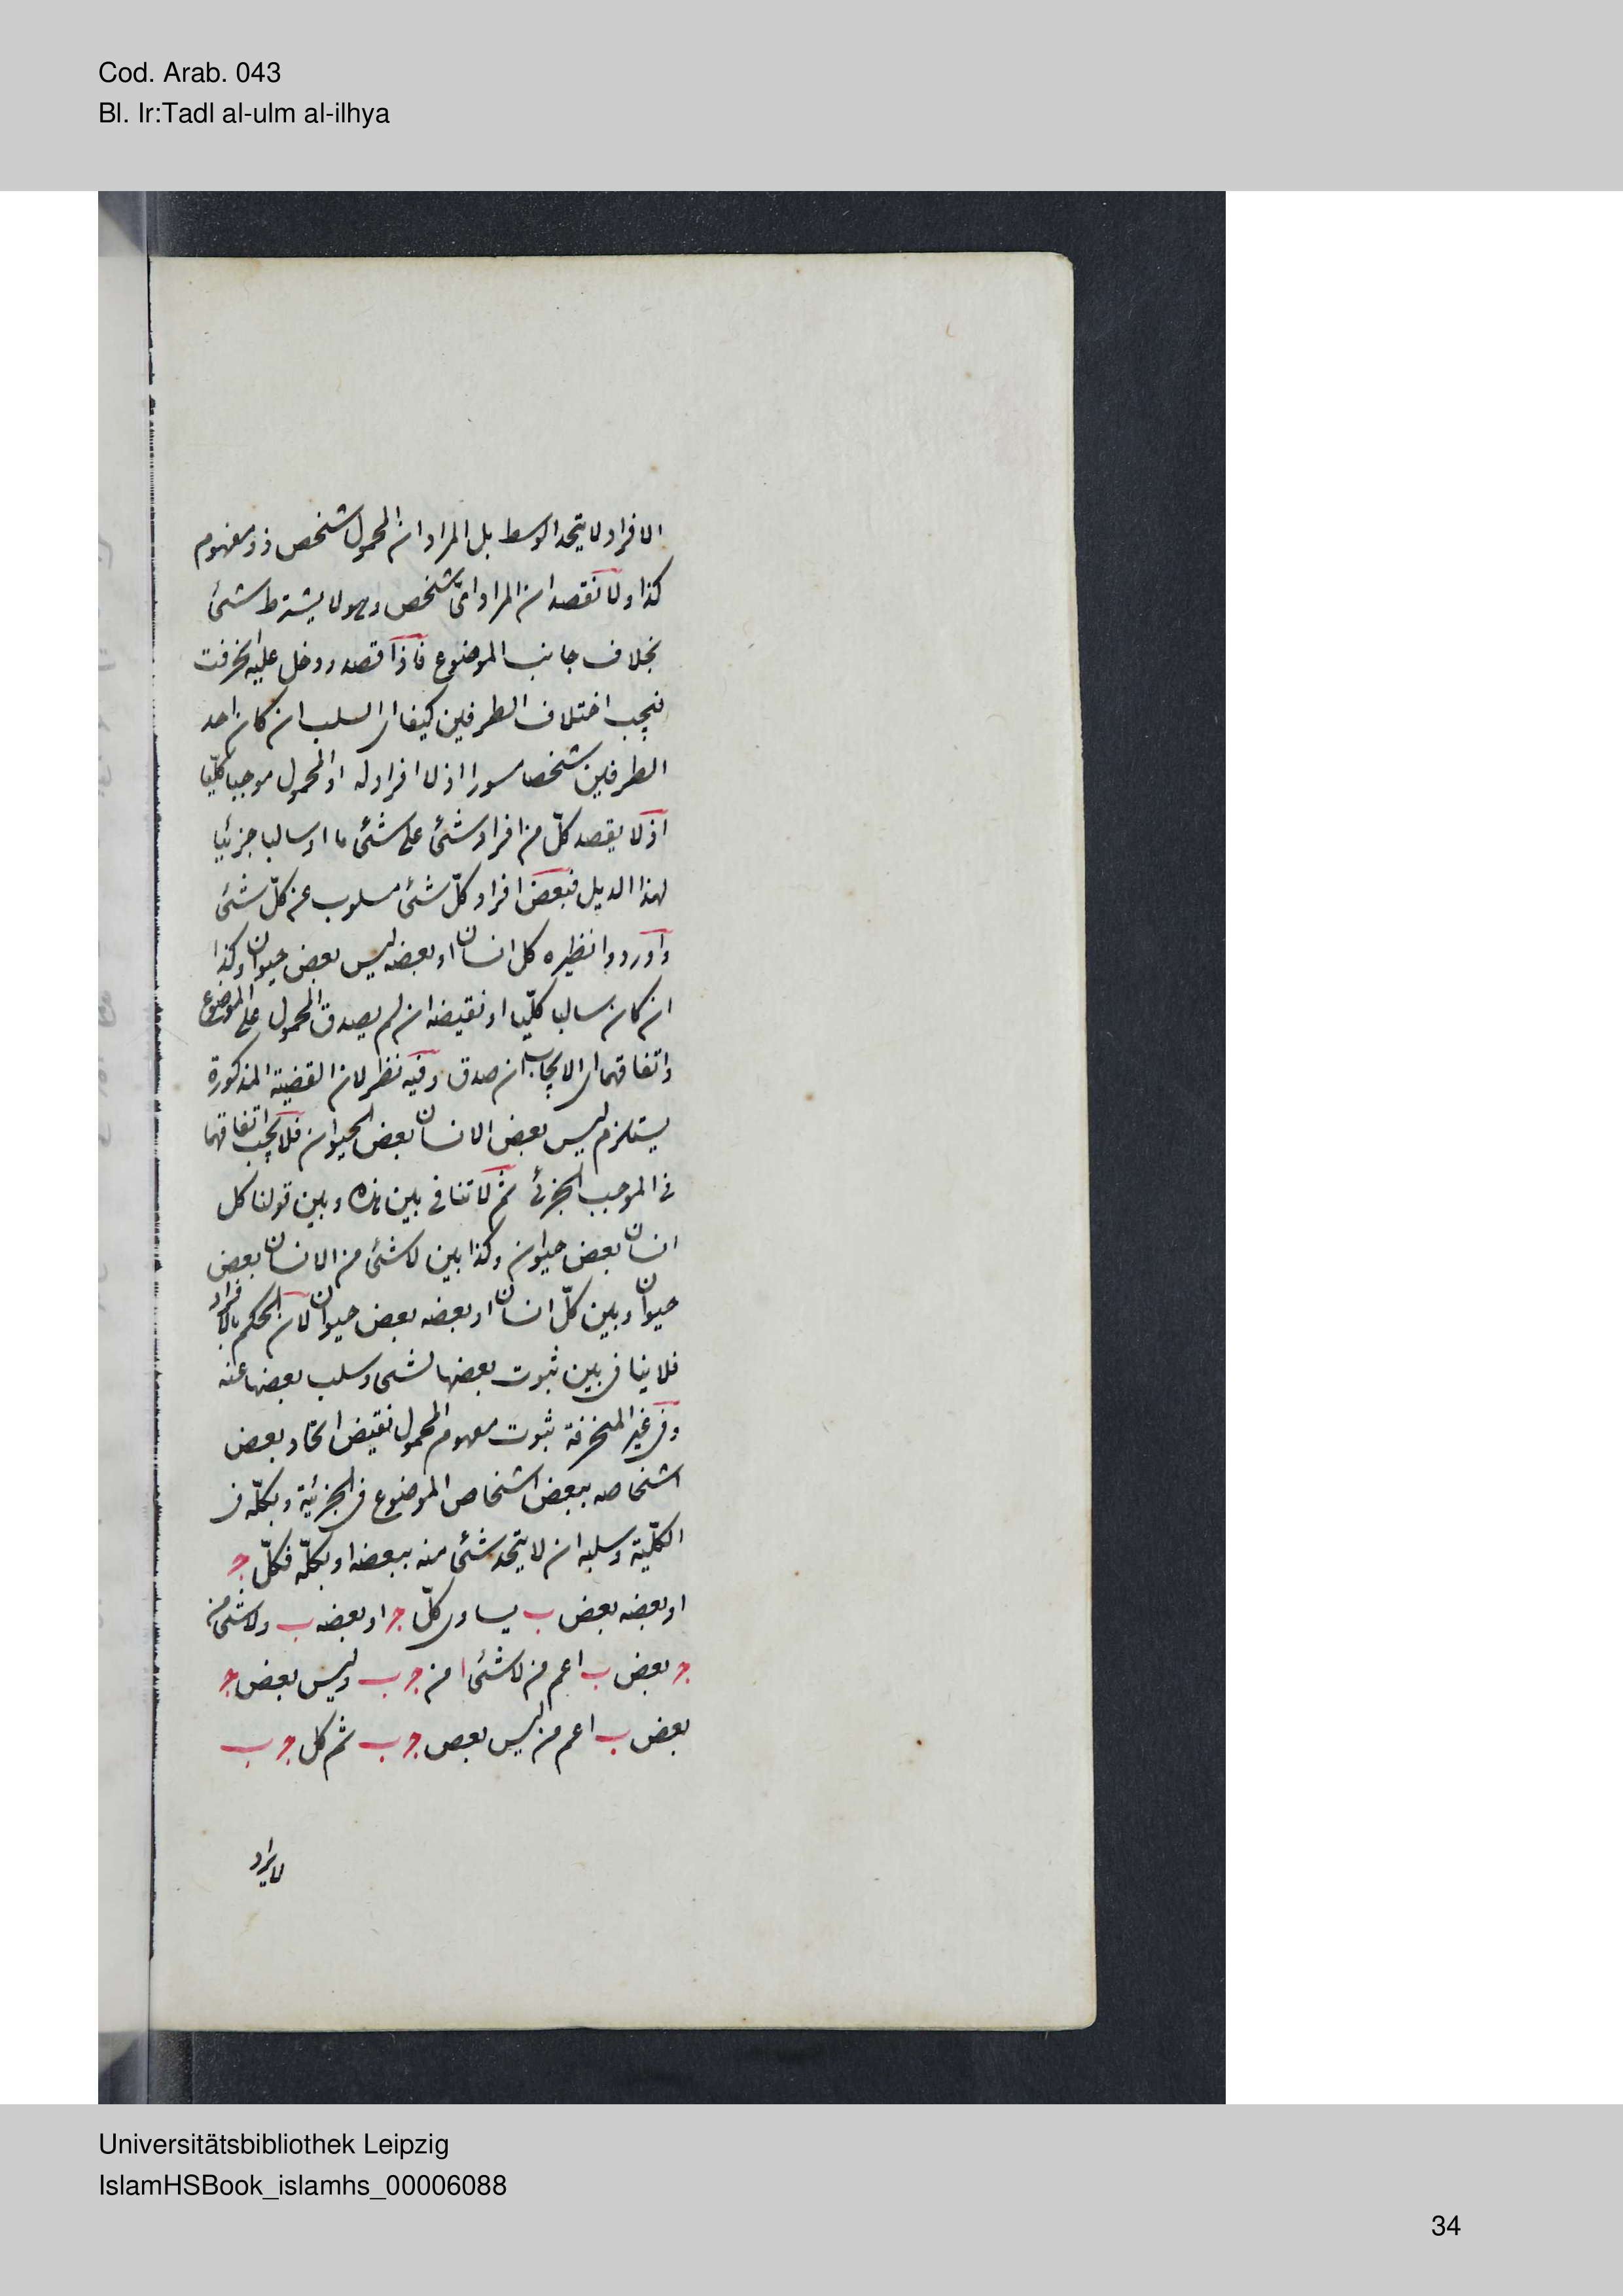 Cod. Arab. 043
Bl. Ir:Tadl al-ulm al-ilhya
الافراد لا يتحد الوسط بل المراد ان المحمول شخص ذو مفهوم
كذا ولا نقصد ان المراد اىّ شخص وهو لا يشترط شئ
بخلاف جانب الموضوع فاذا قصد ودخل عليه انحرفت
فيجب اختلاف الطرفين كيفا اى السلب ان كان احد
الطرفين شخصا مسورا اذ لا افراد له او المحمول موجبا كليّا
اذ لا يقصد كلّ من افراد شئ على شئ ما او سالبا جزئيا
لهذا الديل فبعض افراد كلّ شئ مسلوب عن كلّ شئ
واوردوا نظيره كل انسان او بعضه ليس بعض حيوان وكذا
ان كان سالبا كلّيا او نقيضه ان لم يصدق المحمول على الموضوع
واتفاقهما اى الايجاب ان صدق وفيه نظر لان القضية المذكورة
يستلزم ليس بعض الانسان بعض الحيوان فلا يجب اتفاقهما
فى الموجب الجزئ ثم لا تنافى بين هذه وبين قولنا كل
انسان بعض حيوان وكذا بين لا شئ من الانسان بعض
حيوان وبين كلّ انسان او بعضه بعض حيوان لان الحكم بالافراد
فلا ينافى بين ثبوت بعضها لشئ وسلب بعضها عنه
وفى غير المنحرفة ثبوت مفهوم المحمول نقيض اتحاد بعض
اشخاصه ببعض اشخاص الموضوع فى الجزئية وبكلّه فى
الكلّية وسلبه ان لا يتحد شئ منه ببعضه او بكلّه فكلّ ج
او بعضه بعض ب يساوى كلّ ج او بعضه ب ولا شئ من
ج بعض ب اعم من لا شئ من ج ب وليس بعض ج
بعض ب اعم من ليس بعض ج ب ثم كل ج ب
لا يراد
Universitätsbibliothek Leipzig
IslamHSBook_islamhs_00006088
34